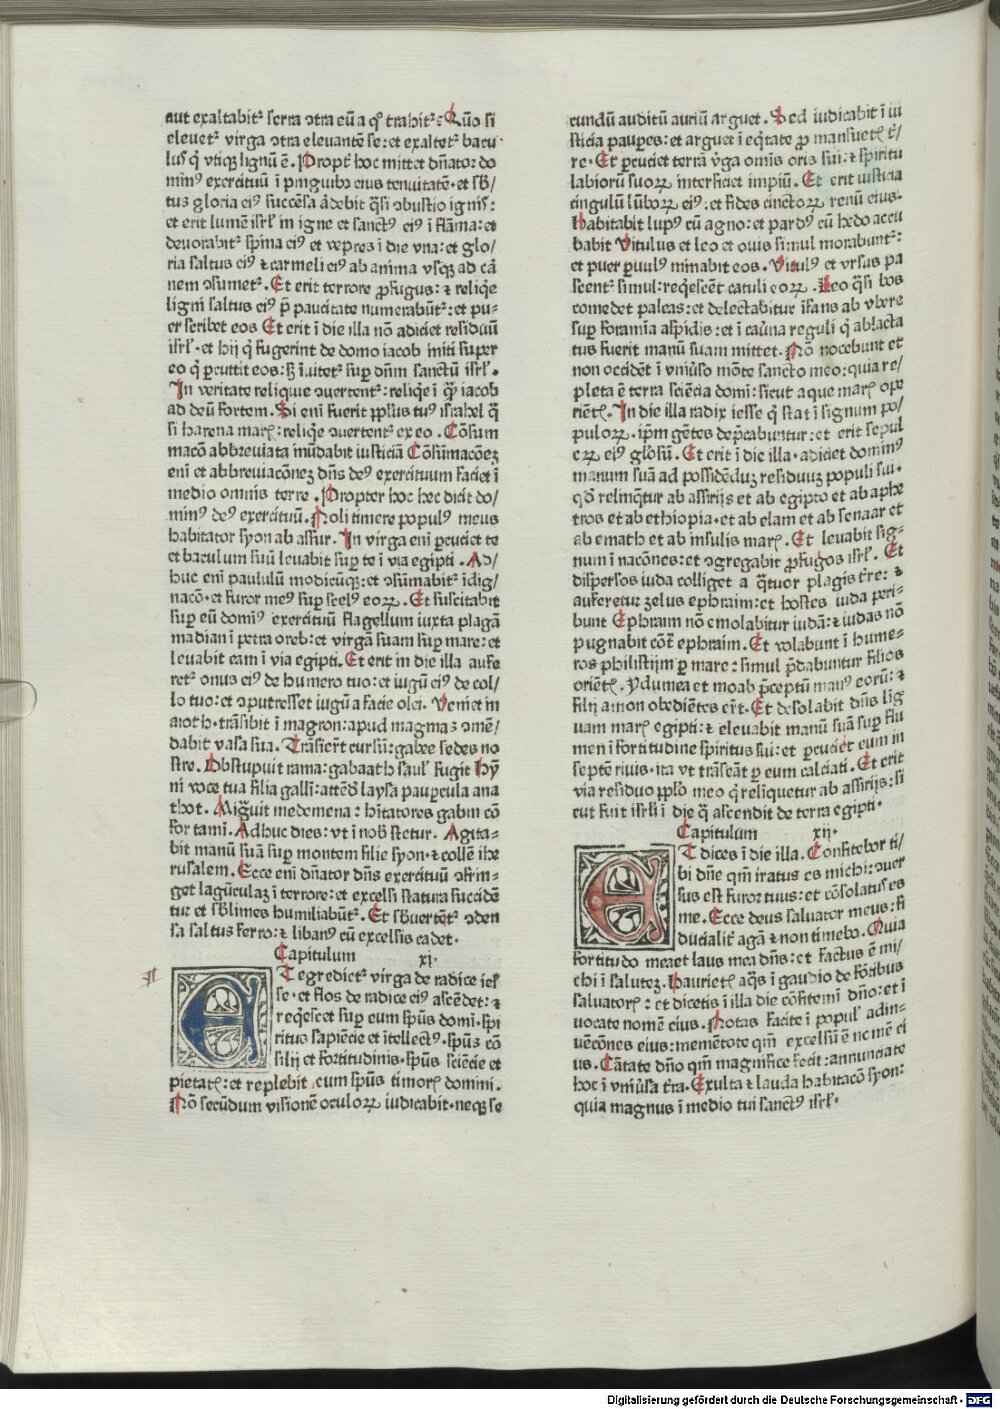 aut exaltabitꝛ serra ↄtra eū a qͦ trahitꝛ: Quō si
eleuetꝛ virga ↄtra eleuantē se: et exaltetꝛ bacu
lusͥ qͥ vtiqꝫ lignū ē. Propt̄ hoc mittet dn̄ator do
minꝰ exercituū ī pinguibꝫ eius tenuitatē. et sb̄/
tus gloria eiꝰ succēsa ādebit q̄si ↄbustio ignisͥ:
et erit lumē isrl̄ in igne et sanctꝰ eiꝰ ī flāma: et
deuorabitꝛ spina eiꝰ et vepres ī die vna: et glo/
ria saltus eiꝰ ⁊ carmeli eiꝰ ab anima vsqꝫ ad cā
nem ↄsumetꝛ. Et erit terrore ꝓfugus: ⁊ reliq̄e
ligni saltus eiꝰ p̄ paucitate numerabūtꝛ: et pu-
er scribet eos Et erit ī die illa nō adiciet residuū
isrl̄. et hij qͥ fugerint de domo iacob īniti super
eo qͥ ꝑcuttit eos: sꝫ īnitetꝛ super dn̄m sanctū isrl̄.
In veritate relique ↄuertentꝛ: reliq̄e ī q̄ꝫ iacob
ad deū fortem. Si enī fuerit ppl̄us tuꝰ israhel q̄
si harena marꝭ: reliq̄e ↄuertentꝛ ex eo. Cōsum
macō abbreuiata inūdabit iusticiā Cōsūmacōneꝫ
enī et abbreuiacōneꝫ dn̄s deꝰ exercituum faciet ī
medio omnis terre. Propter hoc hec dicit do/
minꝰ deꝰ exercituū. Noli timere populꝰ meus
habitator syon ab assur. In virga enī ꝑcuciet te
et baculum suū leuabit suꝑ te ī via egipti. Ad/
huc enī paululū modicūqꝫ: et ↄsūmabitꝛ īdig/
nacō. et furor meꝰ suꝑ scelꝰ eoꝝ. Et suscitabit
suꝑ eū dominꝰ exercituū flagellum iuxta plagā
madian ī petra oreb: et virgā suam suꝑ mare: et
leuabit eam ī via egipti. Et erit in die illa aufe
retꝛ onus eiꝰ de humero tuo: et iugū eiꝰ de col/
lo tuo: et ↄputresset iugū a facie olei. Veniet in
aioth. trāsibit ī magron: apud magmas ↄmē/
dabit vasa sua. Trāsiert̄ cursū: gabee sedes no
stre. Obstupuit rama: gabaath saulꝭ fugit Hȳ
ni voce tua filia galli: attēd laysa paupercula ana
thot. Migͣuit medemena: hītatores gabin cō
fortamī. Adhuc dies: vt ī nobꝭ stetur. Agita-
bit manū suā suꝑ montem filie syon. ⁊ collē ihe
rusalem. Ecce enī dn̄ator dn̄s exercituū ↄfrin-
get lagūculaꝫ ī terrore: et excelsi statura succidē
tur et sb̄limes humiliabūtꝛ. Et sb̄uertētꝛ ↄden
sa saltus ferro: ⁊ libanꝰ cū excelsis cadet.
Capitulum xi.
ET egredietꝛ virga de radice ies
se. et flos de radice eiꝰ ascēdet: ⁊
req̄escet suꝑ eum spūs domī. spi
ritus sapiēcie et ītellectꝰ. spūs cō
silij et fortitudinis. spūs sciēcie et
pietatꝭ: et replebit eum spūs timorꝭ domini.
Nō secūdum visionē oculoꝝ iudicabit. neqꝫ se
cundū auditū auriū arguet. Sed iudicabit ī iu
sticia pauꝑes: et arguet ī eq̄tate ꝓ mansuetꝭ tr̄/
re. Et ꝑcuciet terrā v̄ga omis oris sui: ⁊ spiritu
labiorū suoꝝ interficiet impiū. Et erit iusticia
cingulū lūboꝝ eiꝰ: et fides cinctoꝝ renū eius.
Habitabit lupꝰ cū agno: et pardꝰ cū hedo accu
babit Vitulus et leo et ouis simul morabuntꝛ:
et puer ꝑuulꝰ minabit eos. Vitulꝰ et vrsus pa
scentꝛ simul: req̄escēt catuli eoꝝ. Leo q̄si bos
comedet paleas: et delectabitur īfans ab vbere
suꝑ foramīa aspidis: et ī cau̇na reguli qͥ ablacta
tus fuerit manū suam mittet. Nō nocebunt et
non occidēt ī vniu̇so mōte sancto meo: quia re/
pleta ē terra sciēcia domī: sicut aque marꝭ ope
riētꝭ. In die illa radix iesse qͥ stat ī signum po/
puloꝝ. ipm̄ gētes dep̄cabuntur: et erit sepul
cꝝ eiꝰ glosū. Et erit ī die illa. adiciet dominꝰ
manum suā ad possidēduꝫ residuuꝫ populi sui.
qd̄ relinq̄tur ab assirijs et ab egipto et ab aphe
tros et ab ethiopia. et ab elam et ab senaar et
ab emath et ab insulis marꝭ. Et leuabit sig-
num ī nacōnes: et ↄgregabit ꝓfugos isrl̄. Et
dispersos iuda colliget a q̄tuor plagis tr̄re: ⁊
auferetur zelus ephraim: et hostes iuda peri-
bunt Ephraim nō emolabitur iudā: ⁊ iudas nō
pugnabit cōt̄ ephraim. Et volabunt ī hume-
ros philistijm ꝑ mare: simul p̄dabuntur filios
oriētꝭ. ydumea et moab p̄ceptū manꝰ eorū: ⁊
filij amon obediētes er̄t. Et desolabit dn̄s lig
uam marꝭ egipti: ⁊ eleuabit manū suā suꝑ flu
men ī fortitudine spiritus sui: et ꝑcuciet eum in
septē riuis. ita vt trāseāt ꝑ eum calciati. Et erit
via residuo ppl̄o meo qͥ reliquetur ab assirijs: si
cut fuit isrl̄i ī die q̄ ascendit de terra egipti.
Capitulum xij.
ET dices ī die illa. Confitebor ti/
bi dn̄e qm̄ iratus es michi: ↄuer
sus est furor tuus: et cōsolatus es
me. Ecce deus saluator meus: fi
ducialit̄ agā ⁊ non timebo. Quia
fortitudo mea et laus mea dn̄s: et factus ē mi/
chi ī saluteꝫ. Haurietꝭ aq̄s ī gaudio de fōtibus
saluatorꝭ: et dicetis ī illa die cōfitemī dn̄o: et ī
uocate nomē eius. Notas facite ī populꝭ adin-
uēcōnes eius: memētote qm̄ excelsū ē nomē ei
us. Cātate dn̄o qm̄ magnifice fecit: annunciate
hoc ī vniu̇sa tr̄a. Exulta ⁊ lauda habitacō syon:
quia magnus ī medio tui sanctꝰ isrl̄.
Digitalisierung gefördert durch die Deutsche Forschungsgemeinschaft - DFG